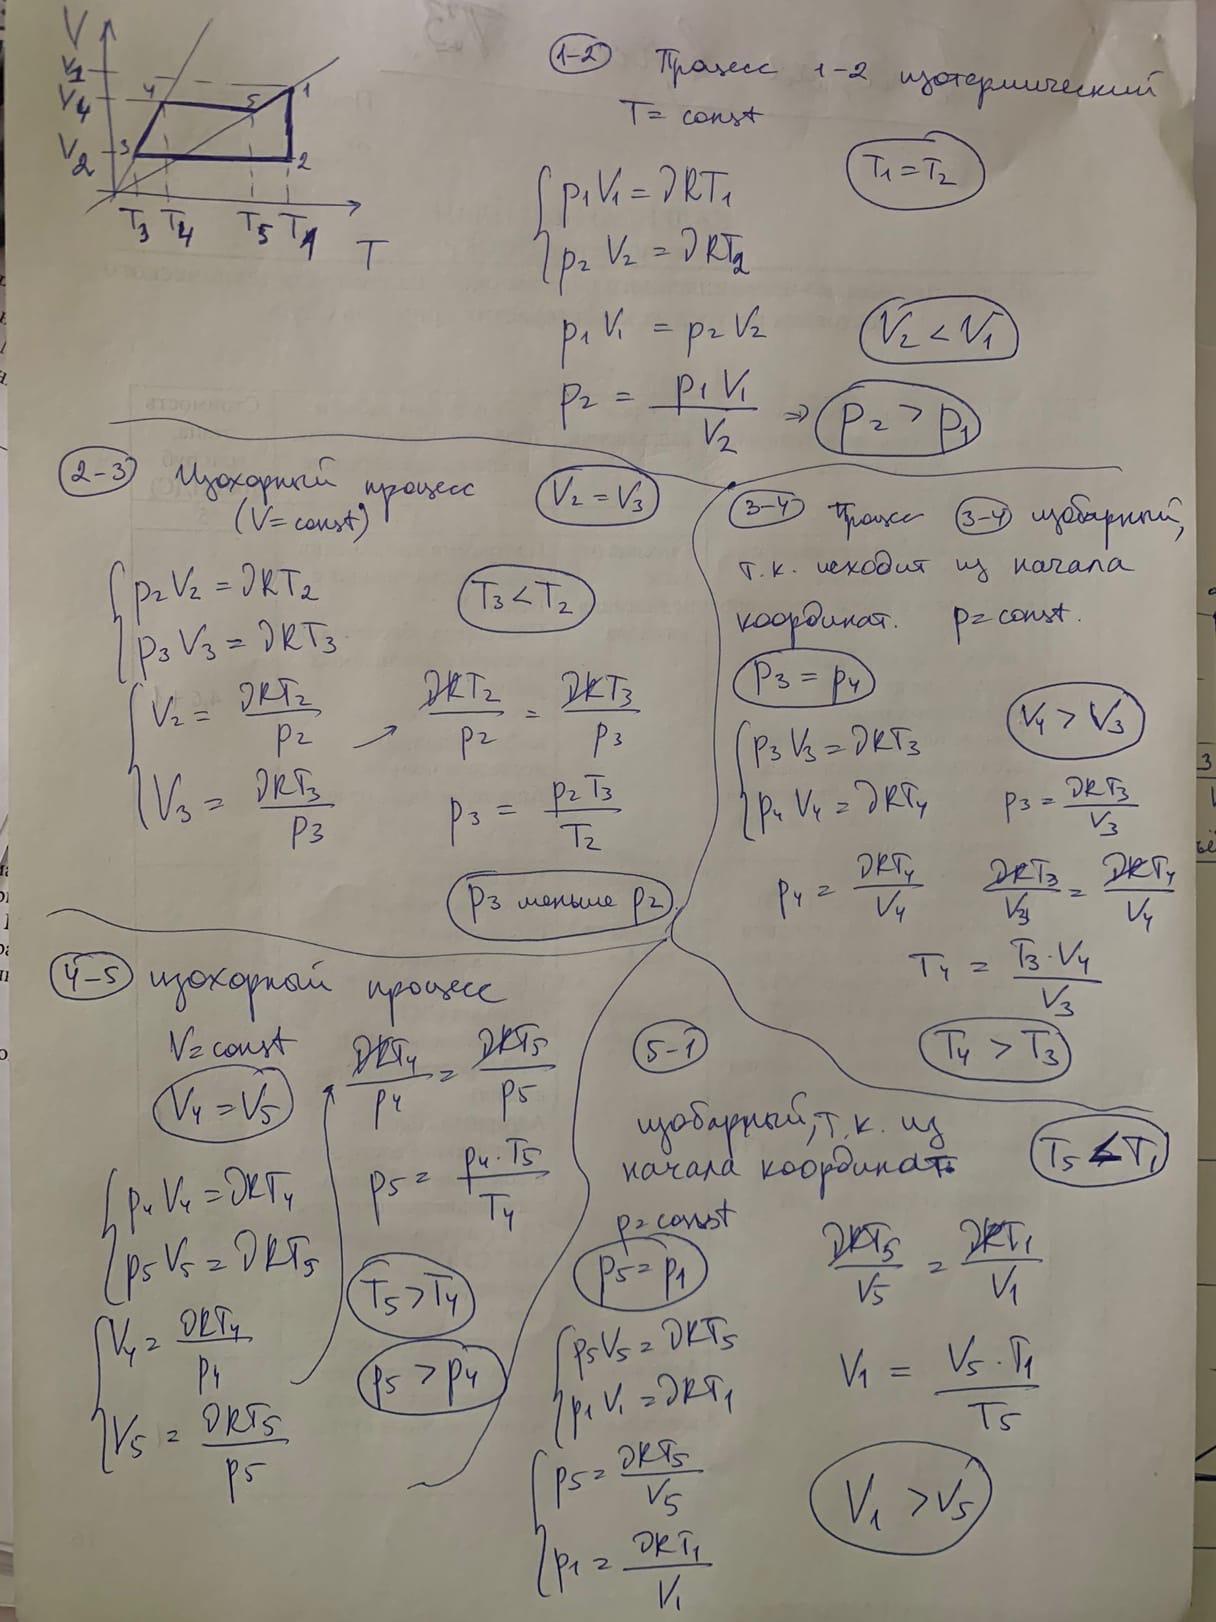 V
V1
V4
V2
4
5
1
3
2
T3 T4 T5 T1
T
1-2 Процесс 1-2 изотермический
T = const
T1 = T2
p1 V1 = νRT1
p2 V2 = νRT2
p1 V1 = p2 V2
V2 < V1
p2 = p1 V1 / V2 => p2 > p1
2-3 Изохорный процесс
(V = const)
V2 = V3
p2 V2 = νRT2
p3 V3 = νRT3
T3 < T2
V2 = νRT2 / p2
νRT2 / p2 = νRT3 / p3
V3 = νRT3 / p3
p3 = p2 T3 / T2
p3 меньше p2
3-4 Процесс 3-4 изобарный,
т.к. исходит из начала
координат. p = const.
p3 = p4
V4 > V3
p3 V3 = νRT3
p4 V4 = νRT4
p3 = νRT3 / V3
p4 = νRT4 / V4
νRT3 / V3 = νRT4 / V4
T4 = T3 · V4 / V3
T4 > T3
4-5 изохорный процесс
V = const
V4 = V5
νRT4 / p4 = νRT5 / p5
p4 V4 = νRT4
p5 V5 = νRT5
p5 = p4 · T5 / T4
T5 > T4
V4 = νRT4 / p4
p5 > p4
V5 = νRT5 / p5
5-1
изобарный, т.к. из
начала координат
T5 < T1
p = const
p5 = p1
νRT5 / V5 = νRT1 / V1
p5 V5 = νRT5
p1 V1 = νRT1
V1 = V5 · T1 / T5
p5 = νRT5 / V5
p1 = νRT1 / V1
V1 > V5